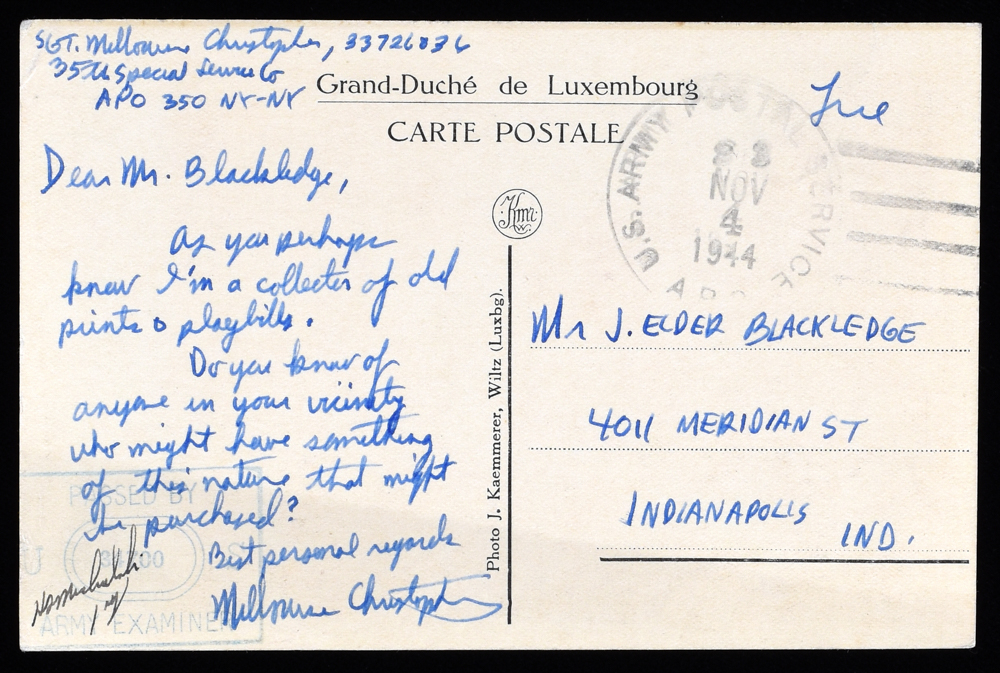 SGT. Milbourne Christopher, 33726836
35th Special Service Co
APO 350 NY-NY
Grand-Duché de Luxembourg
CARTE POSTALE
Free
U.S. ARMY POSTAL SERVICE
NOV
4
1944
APO
Dear Mr. Blackledge,
As you perhaps
know I'm a collector of old
prints & playbills.
Do you know of
anyone in your vicinity
who might have something
of this nature that might
be purchased?
Best personal regards
Milbourne Christopher
Kmr
W.
Photo J. Kaemmerer, Wiltz (Luxbg).
Mr J. ELDER BLACKLEDGE
4011 MERIDIAN ST
INDIANAPOLIS
IND.
PASSED BY
ARMY EXAMINER